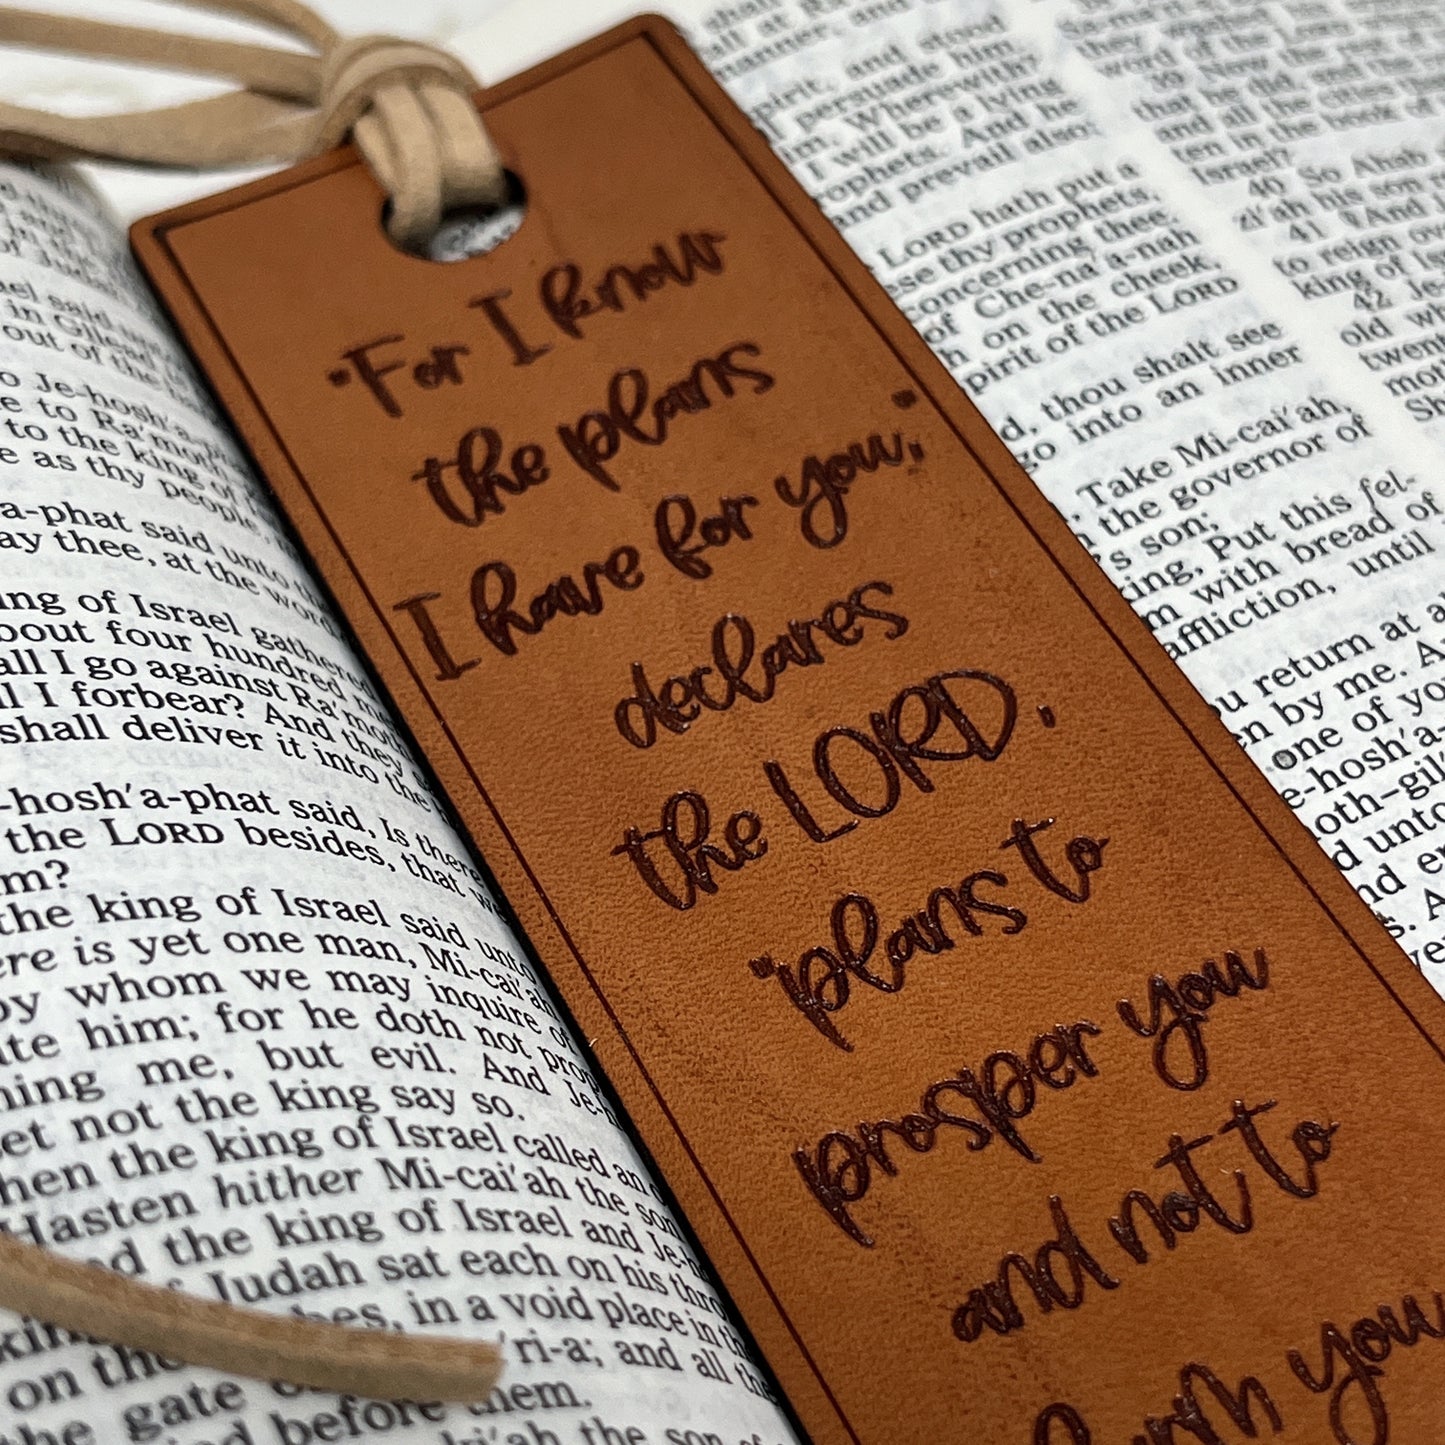 "For I know
the plans
I have for you,"
declares
the LORD,
"plans to
prosper you
and not to
harm you
el said
in Gilead
out of the
o Je-hosh'a-
e to Ra'moth
to the king of
e as thy people,
a-phat said unto
ay thee, at the word
ing of Israel gathered
bout four hundred men
all I go against Ra'moth
ll I forbear? And they
shall deliver it into the
-hosh'a-phat said, Is there
the LORD besides, that we
m?
the king of Israel said unto
ere is yet one man, Mi-cai'ah
by whom we may inquire of
ate him; for he doth not prop
ning me, but evil. And Je-h
et not the king say so.
hen the king of Israel called an
Hasten hither Mi-cai'ah the son
nd the king of Israel and Je-h
Judah sat each on his thro
es, in a void place in th
'ri-a; and all the
on the
the gate
d before them.
ki'ah the son of
shall
and
spirit, and stood
persuade him.
im, Wherewith?
I will be a lying
rophets. And he
and prevail also:
LORD hath put a
se thy prophets,
concerning thee.
of Che-na'a-nah
h on the cheek,
pirit of the LORD
d, thou shalt see
go into an inner
Take Mi-cai'ah,
the governor of
's son;
ing, Put this fel-
m with bread of
affliction, until
u return at a
en by me. A
one of yo
e-hosh'a-
oth-gil'
d unto
nd e
they
word of the
39 Now the rest of
that he did, and the
and all the cities
ten in the book of
Israel?
40 So Ahab
zi'ah his son
41 ¶And
to reign ov
king of Is
42 Je-
old wh
twent
mot
Sh